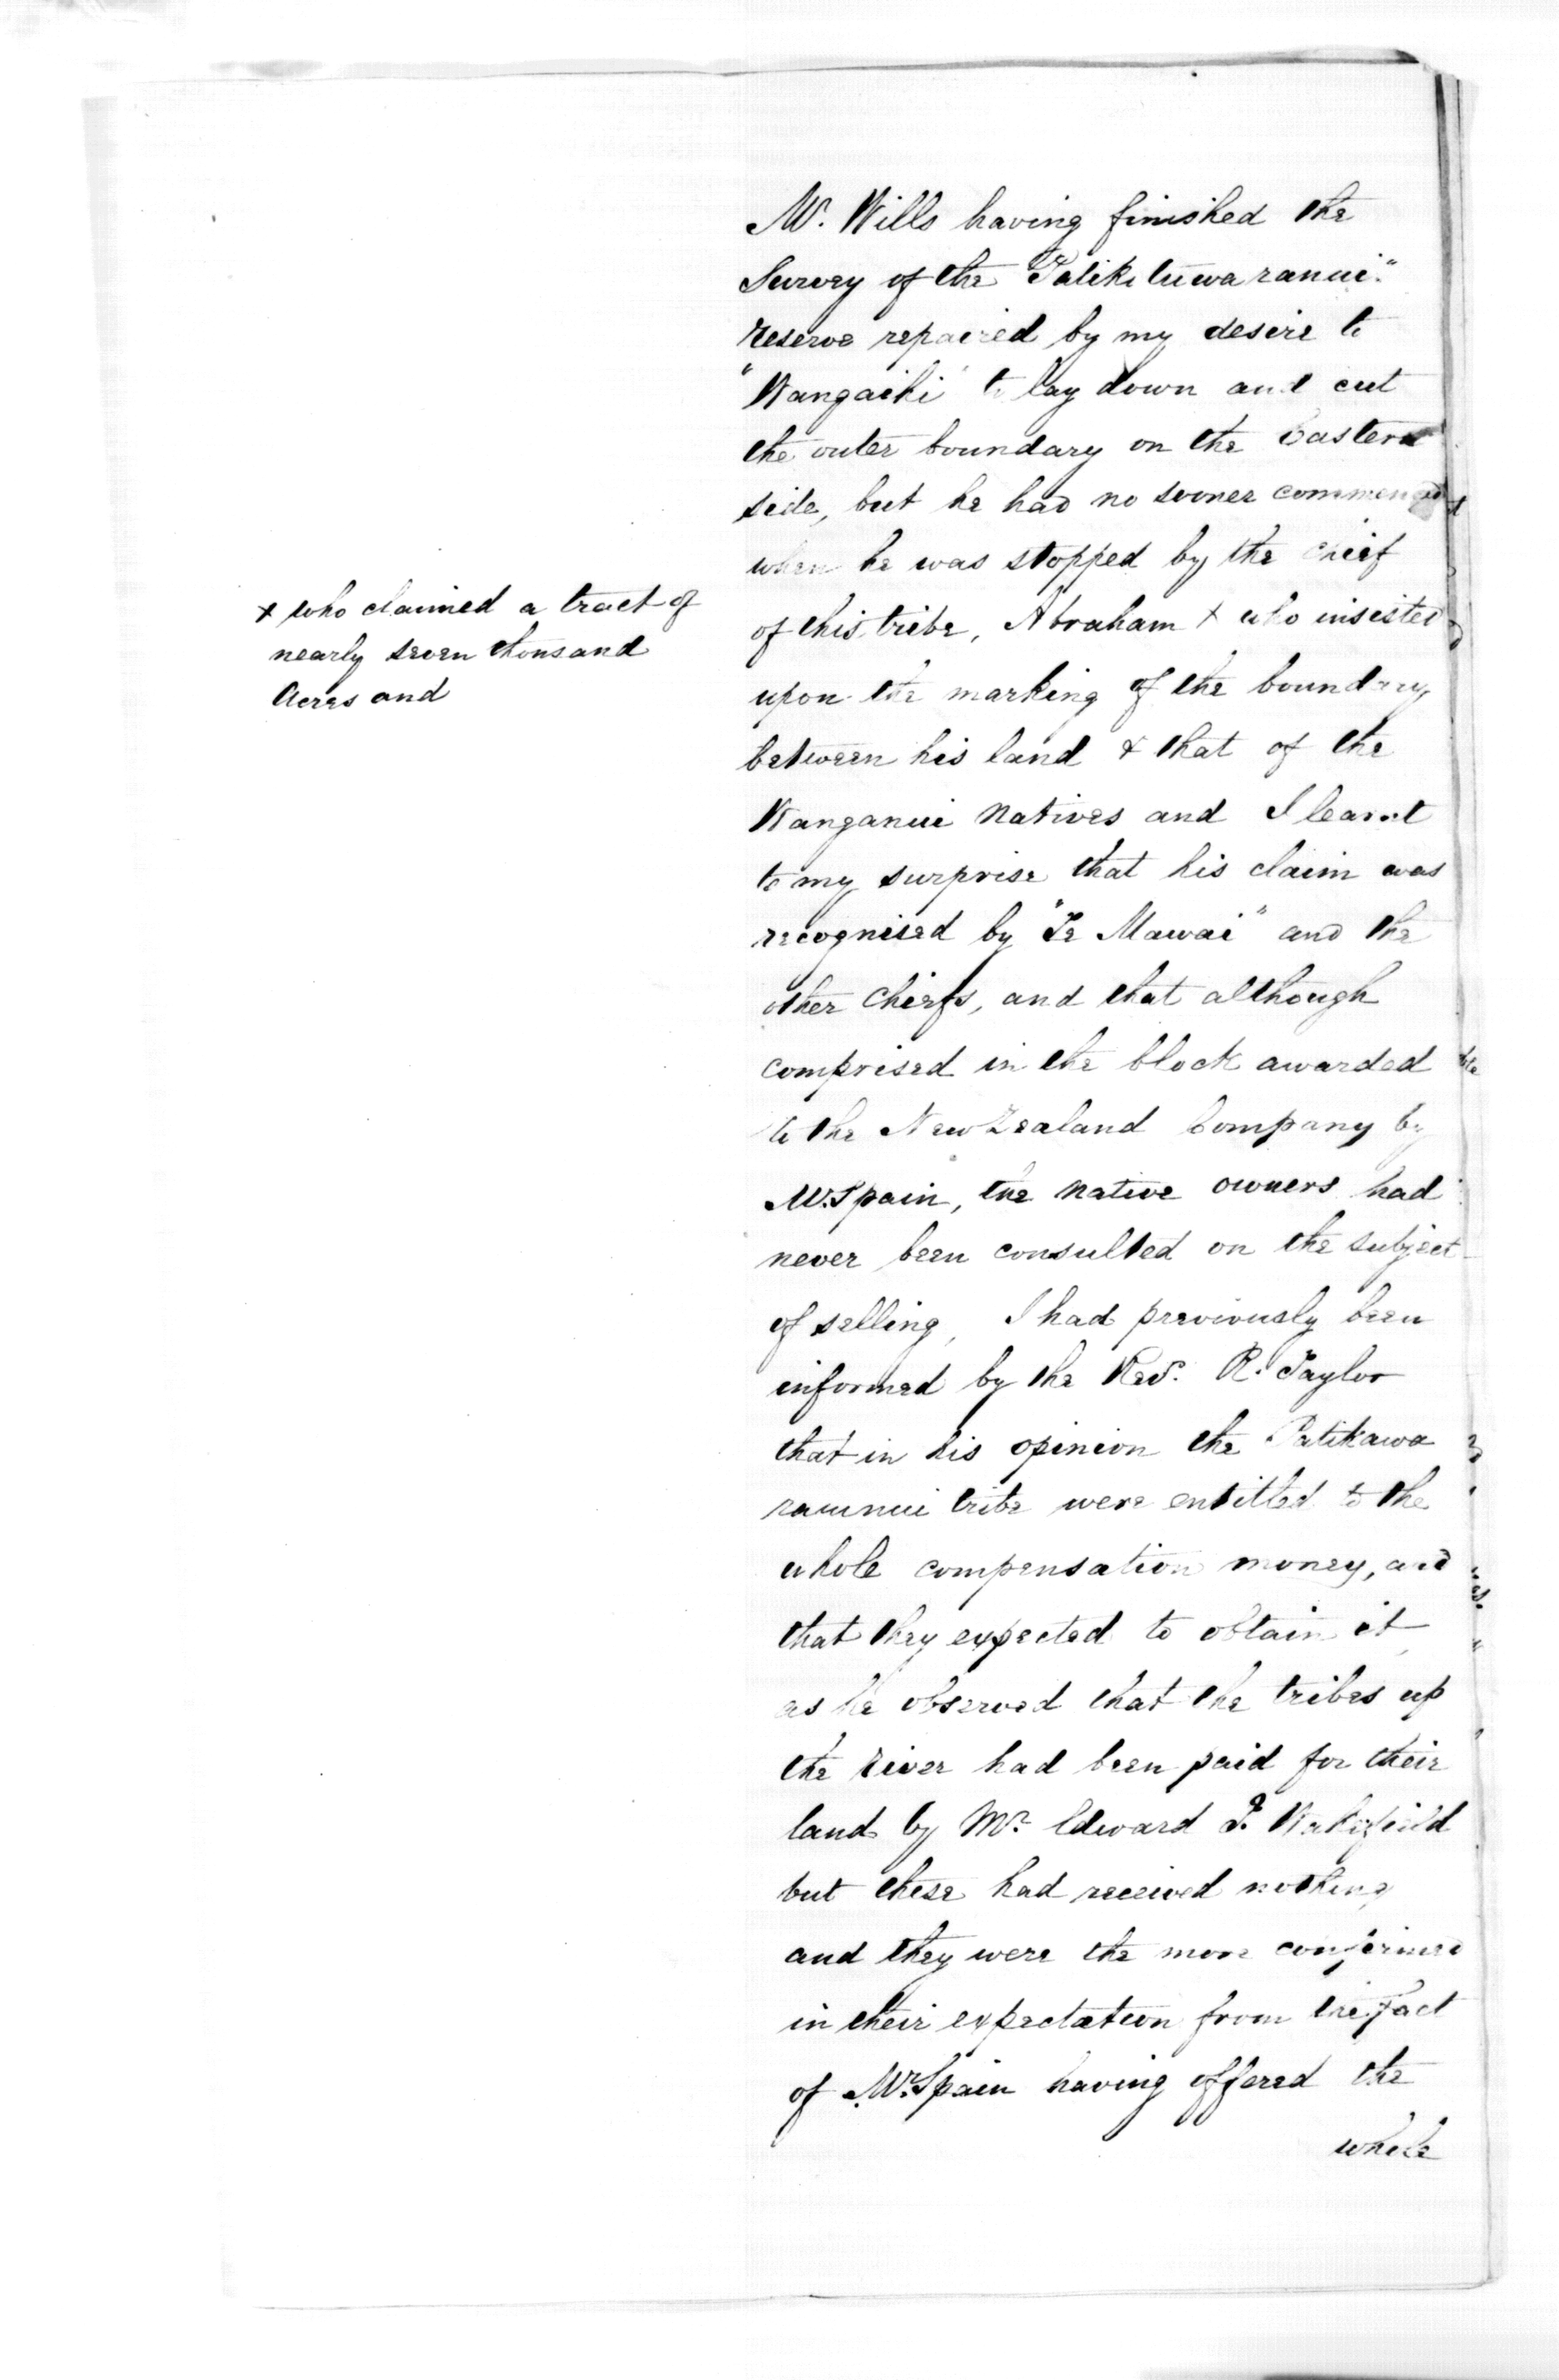 Mr. Wills having finished the
Survey of the "Patikituwaranui"
reserve repaired by my desire to
"Wangaihi" to lay down and cut
the outer boundary on the Eastern
side, but he had no sooner commenced
when he was stopped by the chief
of this tribe, Abraham x who insisted
x who claimed a tract of
nearly seven thousand
Acres and
upon the marking of the boundary
between his land & that of the
Wanganui Natives and I learnt
to my surprise that his claim was
recognised by "Te Mawai" and the
other Chiefs, and that although
comprised in the block awarded
to the New Zealand Company by
Mr. Spain, the native owners had
never been consulted on the subject
of selling, I had previously been
informed by the Revd. R. Taylor
that in his opinion the Patikawa
raunui tribe were entitled to the
whole compensation money, and
that they expected to obtain it,
as he observed that the tribes up
the River had been paid for their
land by Mr. Edward J. Wakefield
but these had received nothing
and they were the more confirmed
in their expectation from the fact
of Mr. Spain having offered the
whole